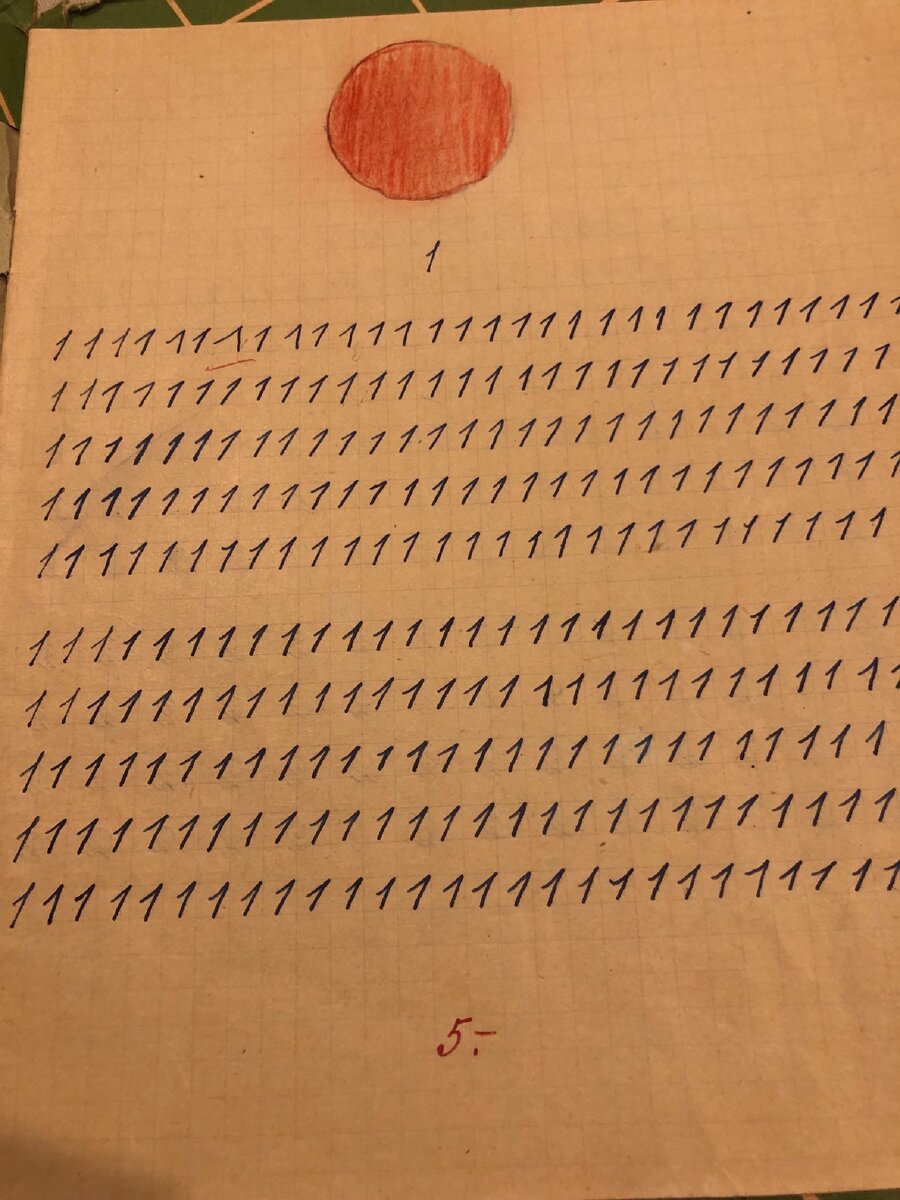 1
1 1 1 1 1 1 1 1 1 1 1 1 1 1 1 1 1 1 1 1 1 1 1 1 1 1 1 1 1 1
1 1 1 1 1 1 1 1 1 1 1 1 1 1 1 1 1 1 1 1 1 1 1 1 1 1 1 1 1
1 1 1 1 1 1 1 1 1 1 1 1 1 1 1 1 1 1 1 1 1 1 1 1 1 1 1 1 1
1 1 1 1 1 1 1 1 1 1 1 1 1 1 1 1 1 1 1 1 1 1 1 1 1 1 1 1 1
1 1 1 1 1 1 1 1 1 1 1 1 1 1 1 1 1 1 1 1 1 1 1 1 1 1 1 1
1 1 1 1 1 1 1 1 1 1 1 1 1 1 1 1 1 1 1 1 1 1 1 1 1 1 1 1
1 1 1 1 1 1 1 1 1 1 1 1 1 1 1 1 1 1 1 1 1 1 1 1 1 1 1 1
1 1 1 1 1 1 1 1 1 1 1 1 1 1 1 1 1 1 1 1 1 1 1 1 1 1 1
1 1 1 1 1 1 1 1 1 1 1 1 1 1 1 1 1 1 1 1 1 1 1 1 1 1 1
1 1 1 1 1 1 1 1 1 1 1 1 1 1 1 1 1 1 1 1 1 1 1 1 1 1 1
5.-